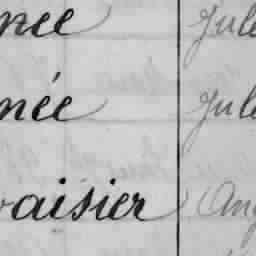 née Jule
née Jule
vaisier Ang